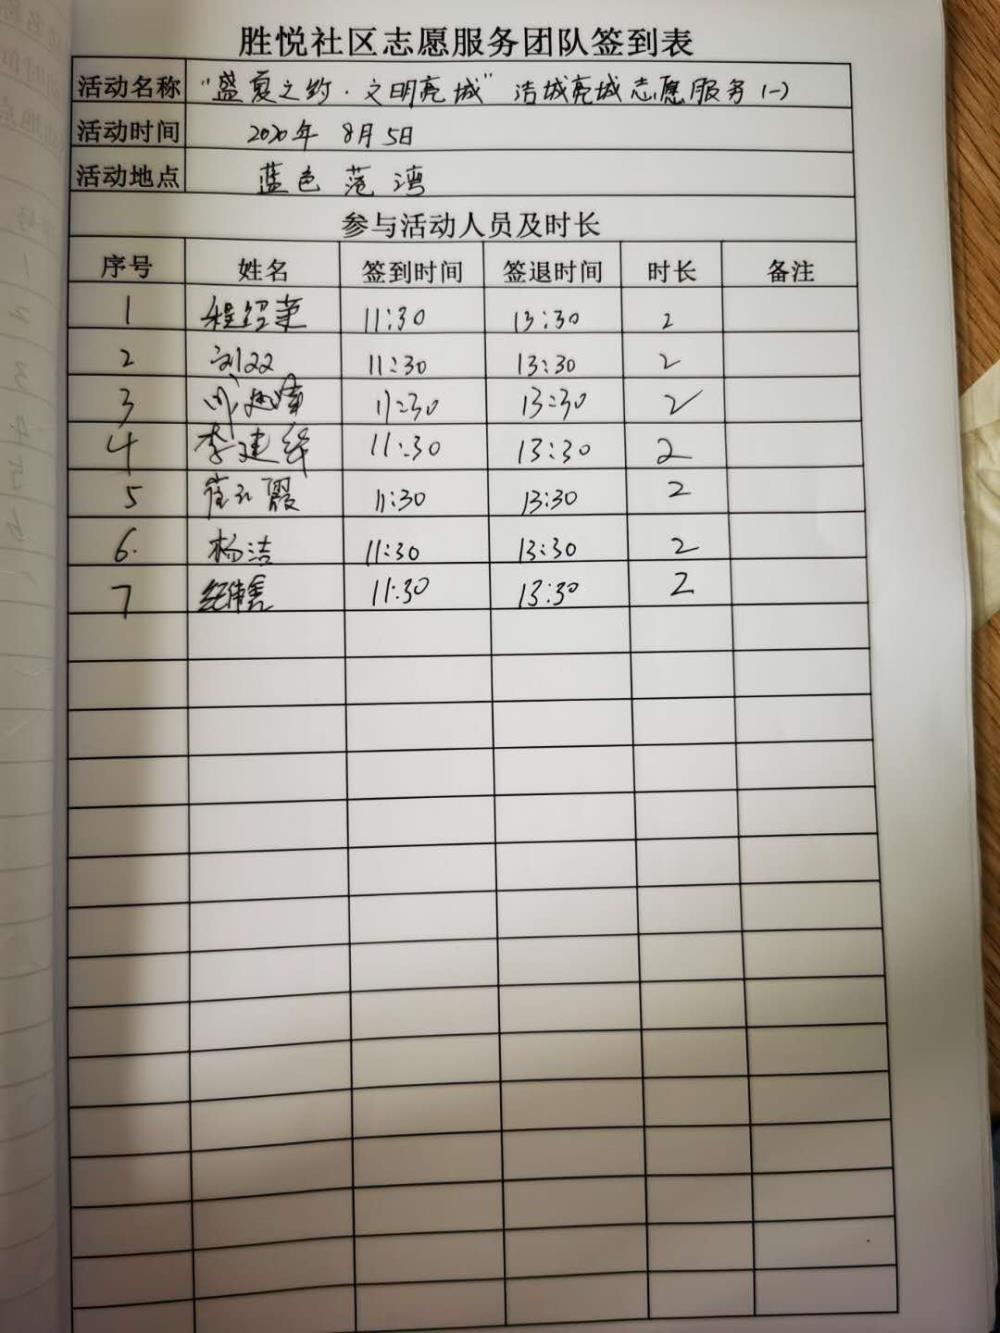 胜悦社区志愿服务团队签到表
活动名称 "盛夏之约·文明亮城"洁城亮城志愿服务(一)
活动时间 2020年 8月5日
活动地点 蓝色 港湾
参与活动人员及时长
序号 姓名 签到时间 签退时间 时长 备注
1 程绍荣 11:30 13:30 2
2 刘双 11:30 13:30 2
3 11:30 13:30 2
4 李建华 11:30 13:30 2
5 11:30 13:30 2
6. 杨洁 11:30 13:30 2
7 11:30 13:30 2